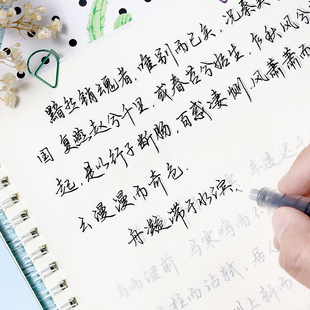 黯然销魂者，唯别而已矣，况秦
国 复燕赵兮千里，或春苔兮始生，乍秋风兮
起，是以行子断肠，百感凄恻，风萧萧而
云漫漫而奇色
舟凝滞于水滨， 车逶迟于
而讵前 马寒鸣而不
柱而沾轼 居人
上轩而